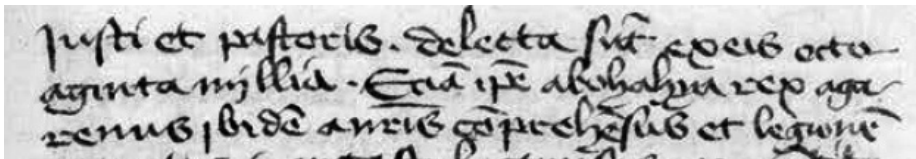 justi et pastoris. delecta sūt ex eis octo
aginta myllia. Eciā ip̄e abohahya rex aga
renus ibidē a nr̄is cōprehēsus et legionē